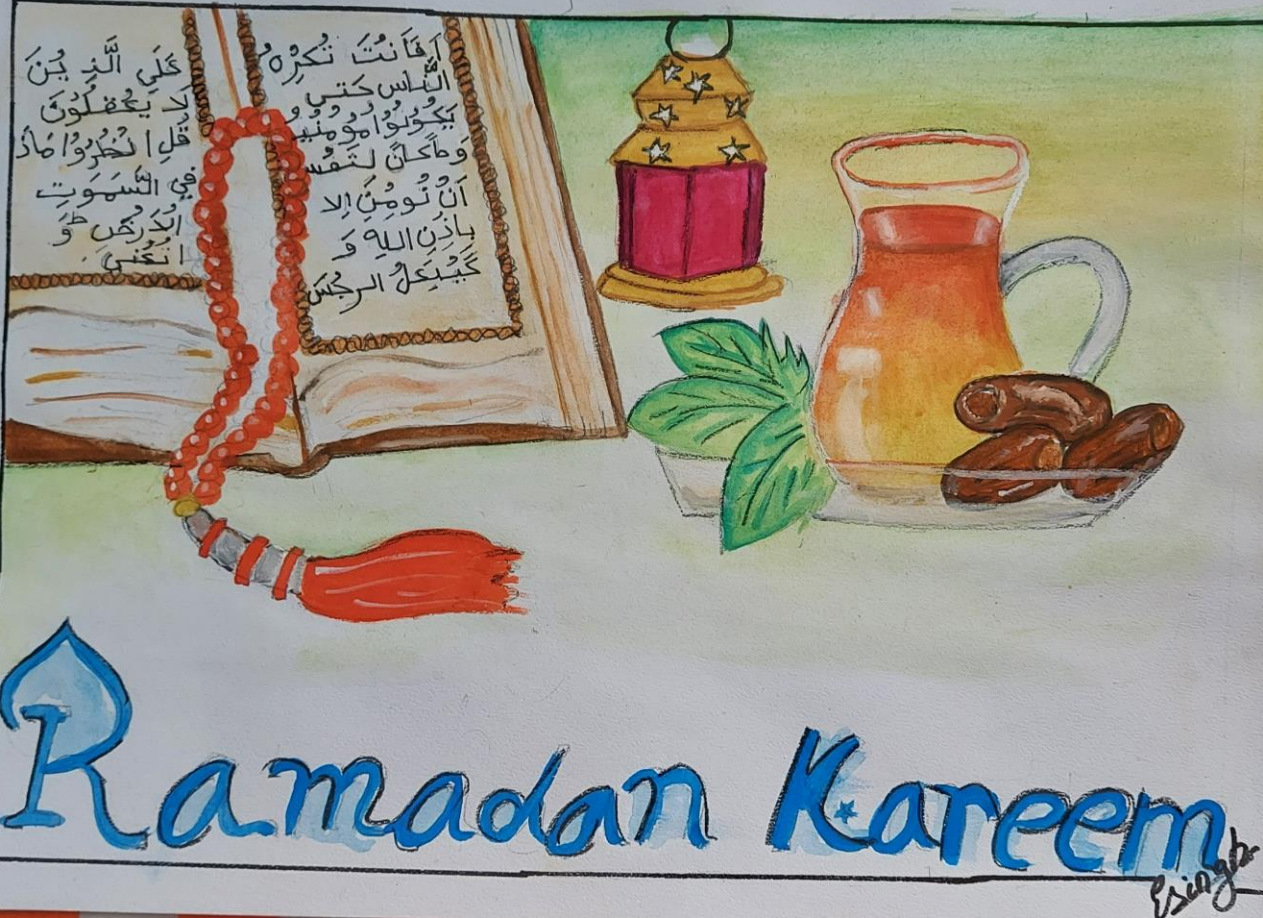 اَفَاَنْتَ تُكْرِهُ
النَّاسَ حَتٰى
يَكُونُوا مُؤْمِنِيْ
وَمَا كَانَ لِنَفْسٍ
اَنْ تُوْمِنَ اِلا
بِاِذْنِ اللهِ وَ
يَجْعَلُ الرِجْسَ
عَلَى الَّذِيْنَ
لَا يَعْقِلُوْنَ
قُلِ انْظُرُوْا مَاذَ
فِي السَّمَوَتِ
الْاَرْضِ وَ
تُغْنِي
Ramadan Kareem